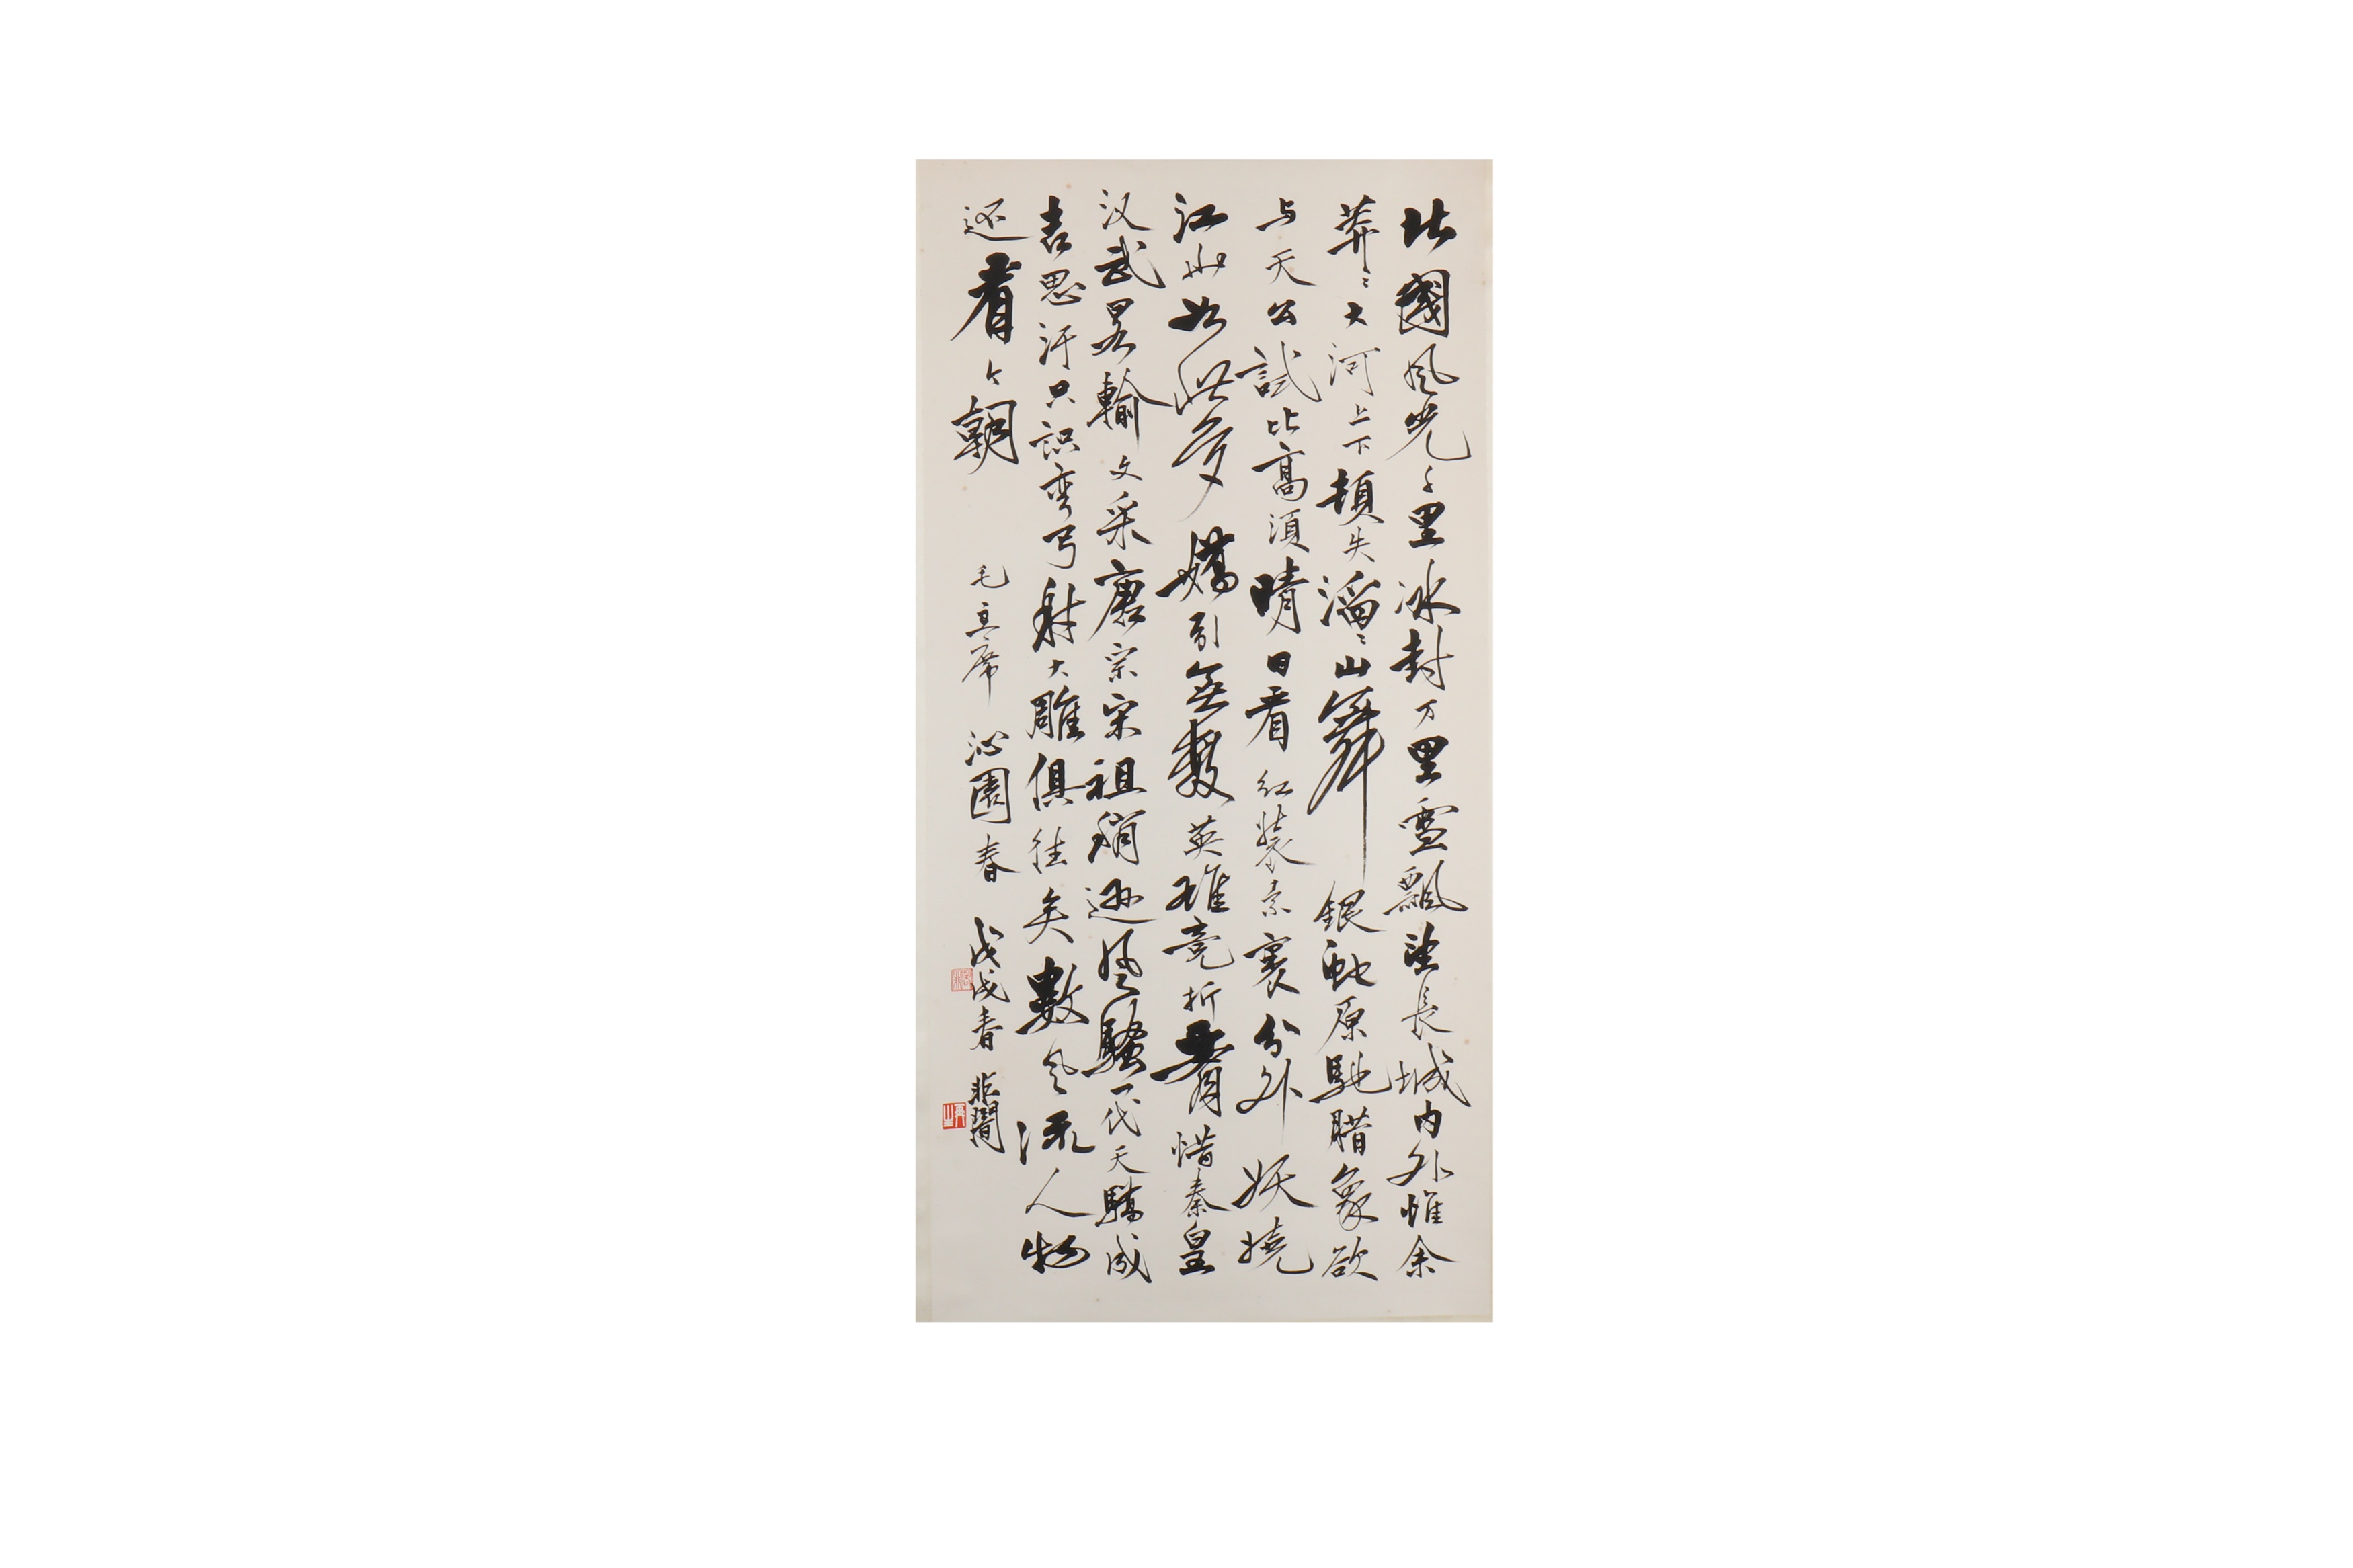 北國風光千里冰封万里雪飄望長城内外惟余
莽〻大河上下頓失滔〻山舞銀虵原馳腊象欲
与天公試比高須晴日看紅裝素裹分外妖嬈
江山如此多嬌引無數英雄竞折腰惜秦皇
汉武畧輸文采唐宗宋祖稍逊風騷一代天驕成
吉思汗只识弯弓射大雕俱往矣數風流人物
还看今朝 毛主席 沁園春 戊戌春 非闇